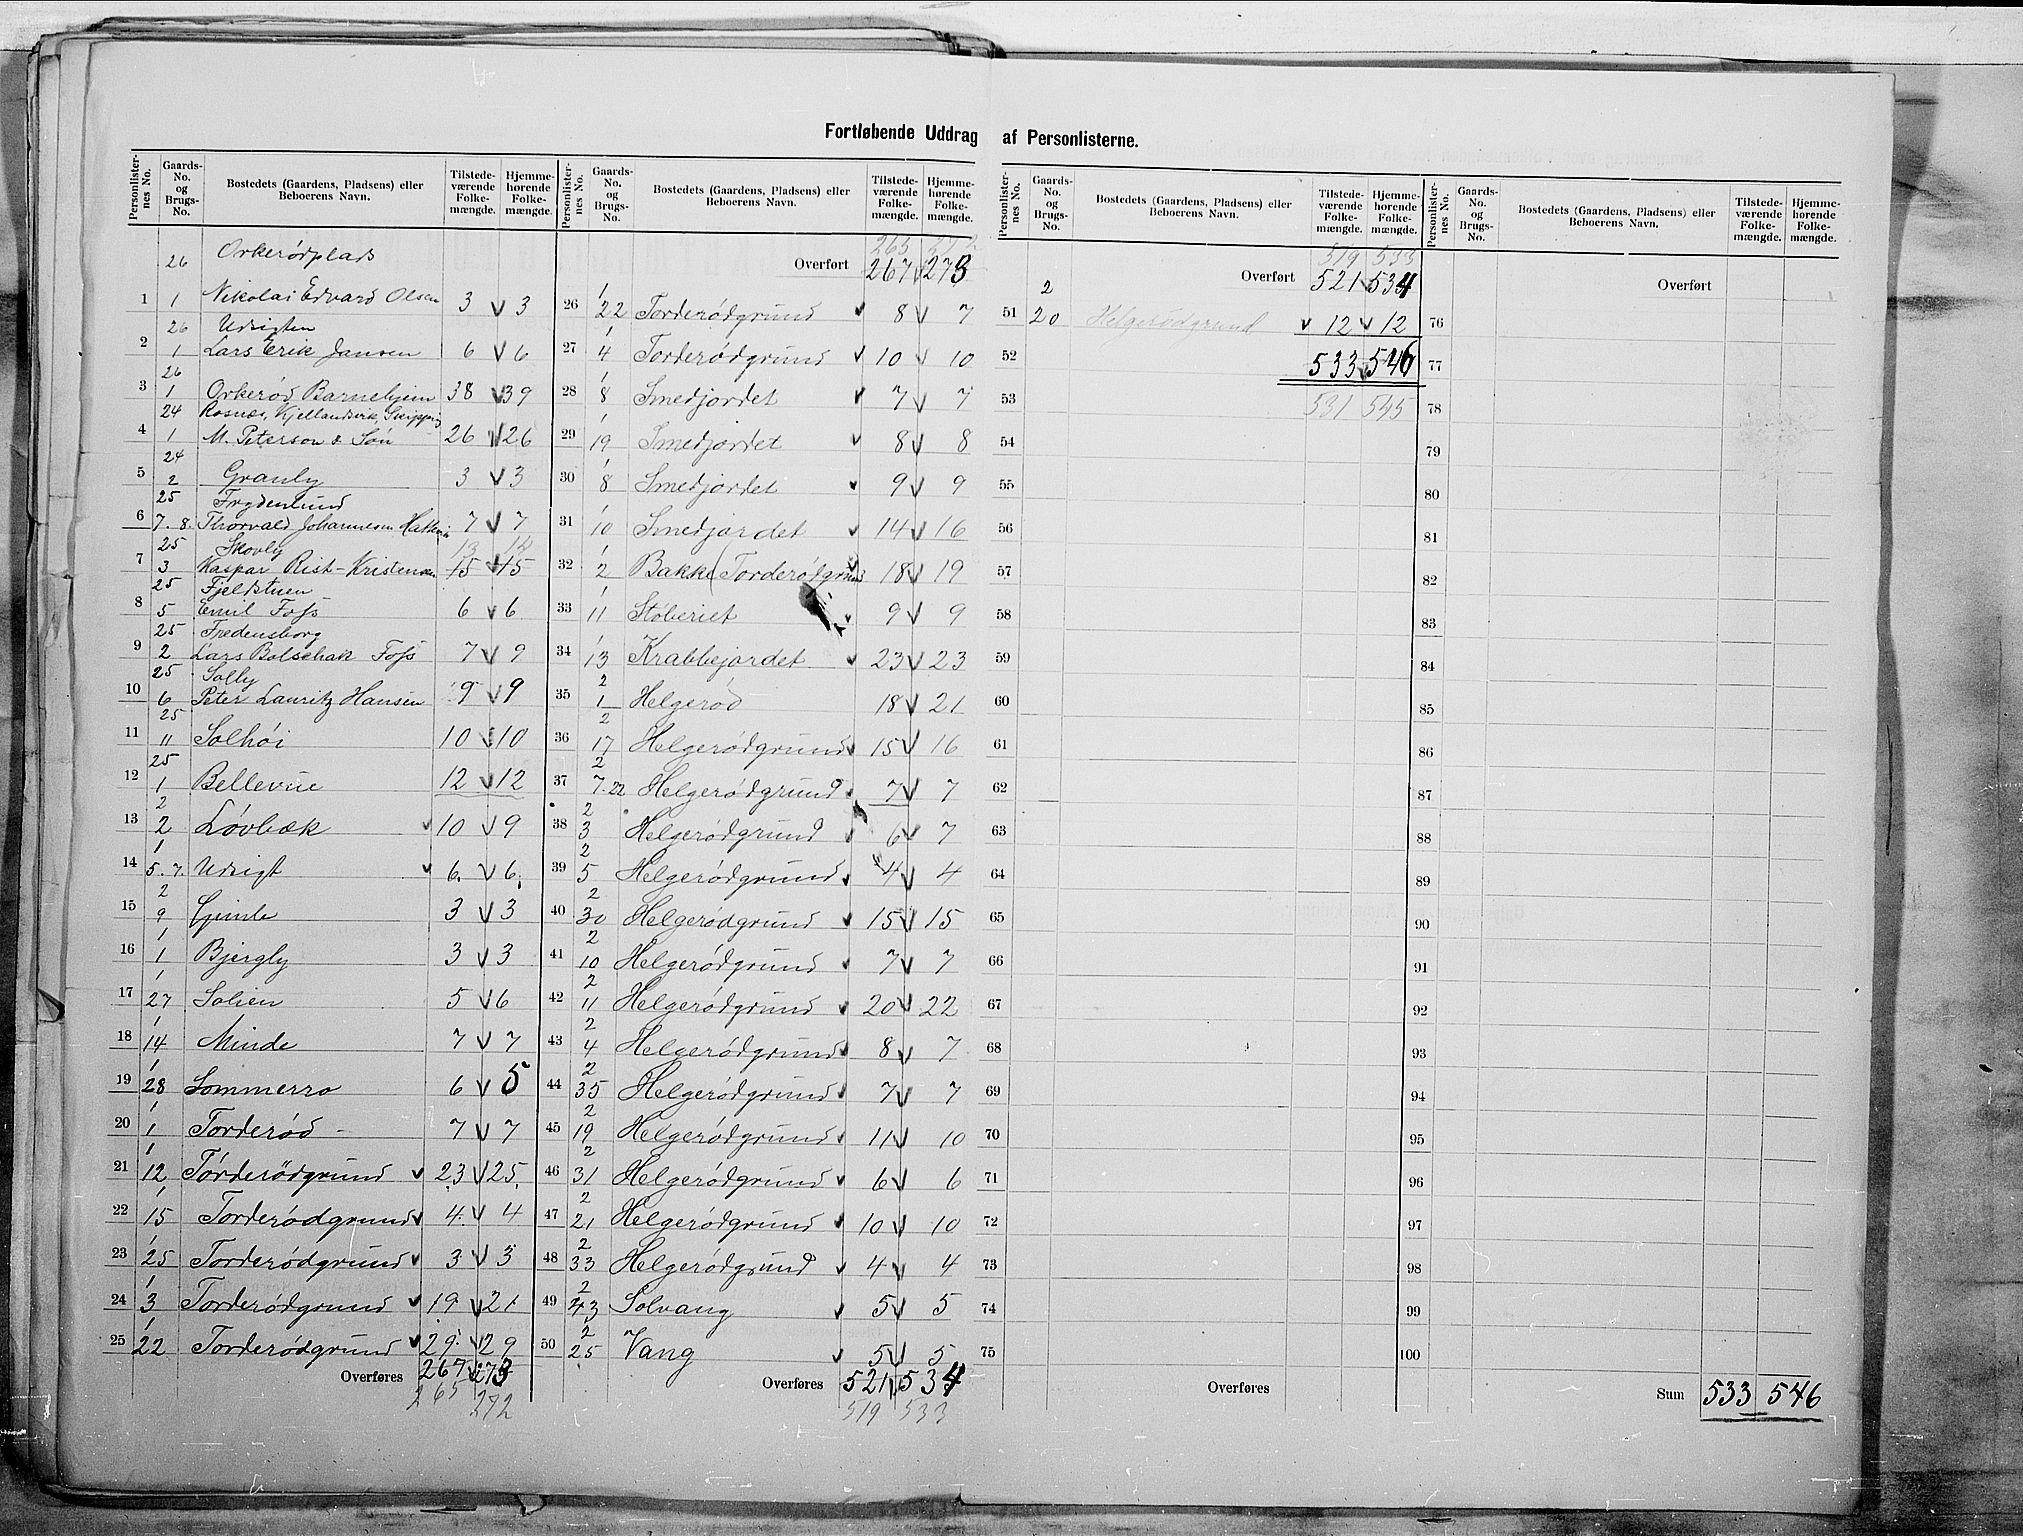 Fortløbende Uddrag af Personlisterne.
Personlisternes No. | Gaards-No. og Brugs-No. | Bostedets (Gaardens, Pladsens) eller Beboerens Navn. | Tilstedeværende Folkemængde. | Hjemmehørende Folkemængde.
26 Orkerødplads
1 1 Nikolai Edvard Olsen 3 3
26 Udsigten
2 1 Lars Erik Jansen 6 6
26
3 1 Orkerød Barnehjem 38 39
24 Rosnæs, Kjellandsvik, Skipping
4 1 M. Peterson & Søn 26 26
24
5 2 Granly 3 3
25 Frydenlund
6 7. 8. Thorvald Johannesen 7 7
25 Skovly 13 12
7 3 Kaspar Rist-Kristensen 15 15
25 Fjeldstuen
8 5 Emil Foss 6 6
25 Fredensborg
9 2 Lars Bolschak Foss 7 9
25 Solly
10 6 Peter Lauritz Hansen 9 9
25
11 11 Solhöi 10 10
25
12 1 Bellevue 12 12
2
13 2 Løvbæk 10 9
1
14 5. 7. Udsigt 6. 6.
2
15 9 Gimle 3 3
1
16 1 Bjergly 3 3
1
17 27 Solien 5 6
1
18 14 Minde 7 7
1
19 28 Sommerro 6 5
1
20 1 Torderød 7 7
1
21 12 Torderødgrund 23 25.
1
22 15 Torderødgrund 4. 4
1
23 25 Torderødgrund 3 3
1
24 3 Torderødgrund 19 21
1
25 22 Torderødgrund 29 29
Overføres 267 273
265 272
265 272
Overført 267 273
1
26 22 Torderødgrund 8 7
1
27 4 Torderødgrund 10 10
1
28 8 Smedjordet 7 7
1
29 19 Smedjordet 8 8
1
30 8 Smedjordet 9 9
1
31 10 Smedjordet 14 16
1
32 2 Bakke (Torderødgrund 18 19
1
33 11 Støberiet 9 9
1
34 13 Krabbejordet 23 23
2
35 1 Helgerød 18 21
2
36 17 Helgerødgrund 15 16
2
37 7. 22 Helgerødgrund 7 7
2
38 3 Helgerødgrund 6 7
2
39 5 Helgerødgrund 4 4
2
40 30 Helgerødgrund 15 15
2
41 10 Helgerødgrund 7 7
2
42 11 Helgerødgrund 20 22
2
43 4 Helgerødgrund 8 7
2
44 35 Helgerødgrund 7 7
2
45 19 Helgerødgrund 11 10
2
46 31 Helgerødgrund 6 6
2
47 21 Helgerødgrund 10 10
2
48 33 Helgerødgrund 4 4
2
49 43 Solvang 5 5
2
50 25 Vang 5 5
Overføres 521 534
519 533
Personlisternes No. | Gaards-No. og Brugs-No. | Bostedets (Gaardens, Pladsens) eller Beboerens Navn. | Tilstedeværende Folkemængde. | Hjemmehørende Folkemængde.
519 533
Overført 521 534
2
51 20 Helgerødgrund 12 12
52 533 546
53 531 545
54
55
56
57
58
59
60
61
62
63
64
65
66
67
68
69
70
71
72
73
74
75
Overføres
Overført
76
77
78
79
80
81
82
83
84
85
86
87
88
89
90
91
92
93
94
95
96
97
98
99
100
Sum 533 546